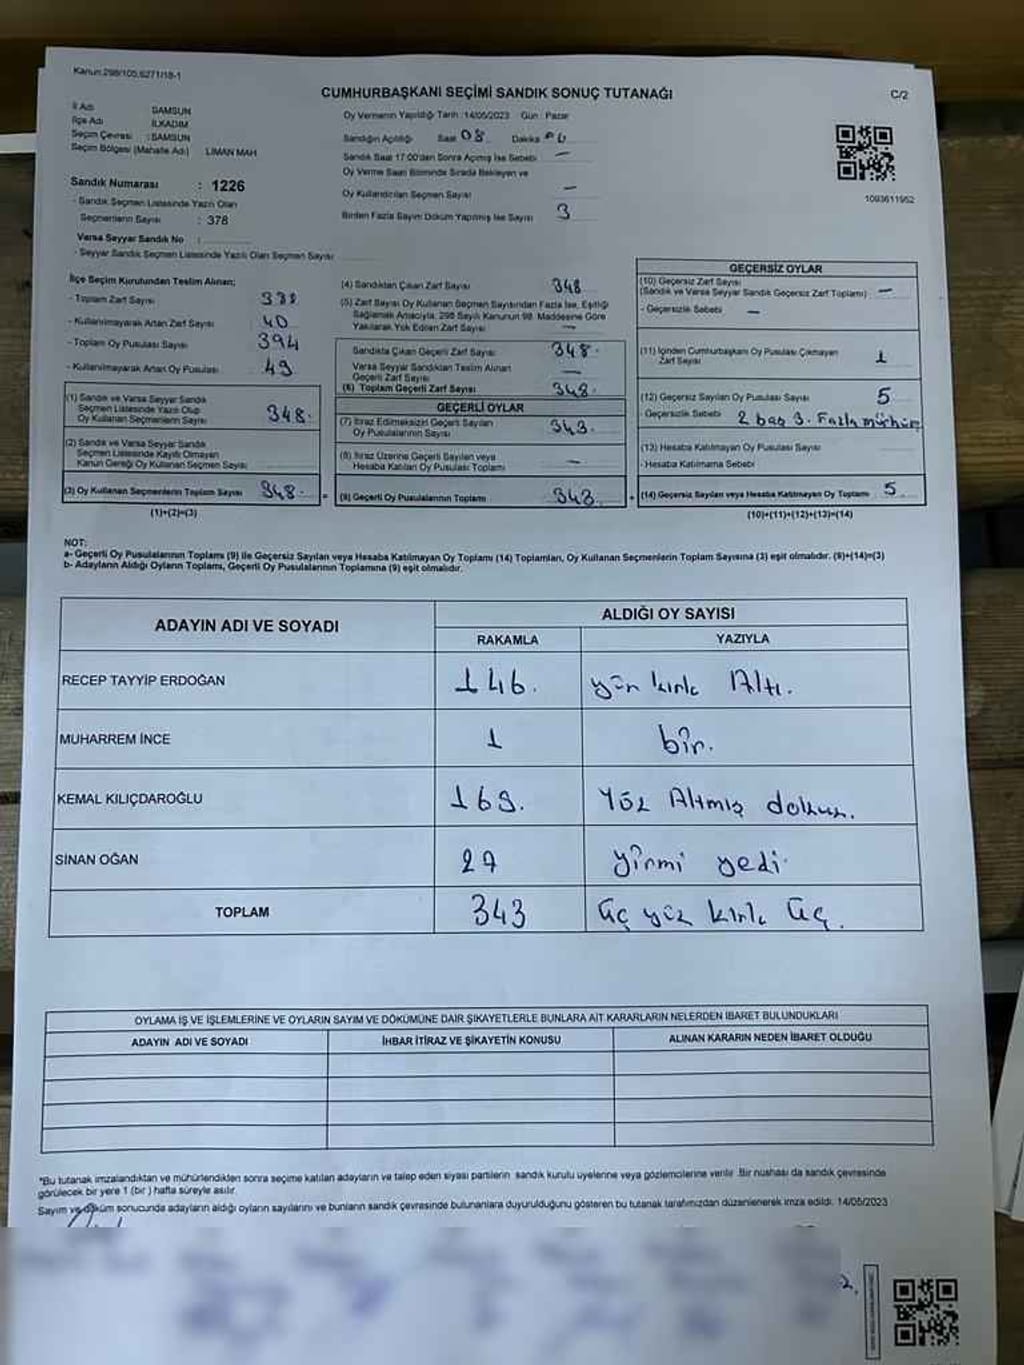 Kanun:298/105,6271/18-1
CUMHURBAŞKANI SEÇİMİ SANDIK SONUÇ TUTANAĞI
C/2
İl Adı SAMSUN
İlçe Adı İLKADIM
Seçim Çevresi : SAMSUN
Seçim Bölgesi (Mahalle Adı) LİMAN MAH
Sandık Numarası : 1226
- Sandık Seçmen Listesinde Yazılı Olan
Seçmenlerin Sayısı : 378
Varsa Seyyar Sandık No :
- Seyyar Sandık Seçmen Listesinde Yazılı Olan Seçmen Sayısı
Oy Vermenin Yapıldığı Tarih :14/05/2023 Gün : Pazar
Sandığın Açıldığı Saat 08 Dakika
Sandık Saat 17:00'den Sonra Açılmış İse Sebebi —
Oy Verme Saati Bitiminde Sırada Bekleyen ve
Oy Kullandırılan Seçmen Sayısı —
Birden Fazla Sayım Döküm Yapılmış İse Sayısı 3
1093611952
İlçe Seçim Kurulundan Teslim Alınan;
- Toplam Zarf Sayısı
- Kullanılmayarak Artan Zarf Sayısı 40
- Toplam Oy Pusulası Sayısı 394
- Kullanılmayarak Artan Oy Pusulası 49
(1) Sandık ve Varsa Seyyar Sandık
Seçmen Listesinde Yazılı Olup
Oy Kullanan Seçmenlerin Sayısı 348.
(2) Sandık ve Varsa Seyyar Sandık
Seçmen Listesinde Kayıtlı Olmayan
Kanun Gereği Oy Kullanan Seçmen Sayısı
(3) Oy Kullanan Seçmenlerin Toplam Sayısı 348. =
(1)+(2)=(3)
(4) Sandıktan Çıkan Zarf Sayısı 348
(5) Zarf Sayısı Oy Kullanan Seçmen Sayısından Fazla İse, Eşitliği
Sağlamak Amacıyla, 298 Sayılı Kanunun 98. Maddesine Göre
Yakılarak Yok Edilen Zarf Sayısı —
Sandıkta Çıkan Geçerli Zarf Sayısı 348.
Varsa Seyyar Sandıktan Teslim Alınan
Geçerli Zarf Sayısı —
(6) Toplam Geçerli Zarf Sayısı 348.
GEÇERLİ OYLAR
(7) İtiraz Edilmeksizin Geçerli Sayılan
Oy Pusulalarının Sayısı 343.
(8) İtiraz Üzerine Geçerli Sayılan veya
Hesaba Katılan Oy Pusulası Toplamı —
(9) Geçerli Oy Pusulalarının Toplamı 343. +
GEÇERSİZ OYLAR
(10) Geçersiz Zarf Sayısı
(Sandık ve Varsa Seyyar Sandık Geçersiz Zarf Toplamı) —
- Geçersizlik Sebebi —
(11) İçinden Cumhurbaşkanı Oy Pusulası Çıkmayan
Zarf Sayısı 1
(12) Geçersiz Sayılan Oy Pusulası Sayısı 5
- Geçersizlik Sebebi 2 boş 3. Fazla mühür
(13) Hesaba Katılmayan Oy Pusulası Sayısı
- Hesaba Katılmama Sebebi
(14) Geçersiz Sayılan veya Hesaba Katılmayan Oy Toplamı 5
(10)+(11)+(12)+(13)=(14)
NOT:
a- Geçerli Oy Pusulalarının Toplamı (9) ile Geçersiz Sayılan veya Hesaba Katılmayan Oy Toplamı (14) Toplamları, Oy Kullanan Seçmenlerin Toplam Sayısına (3) eşit olmalıdır. (9)+(14)=(3)
b- Adayların Aldığı Oyların Toplamı, Geçerli Oy Pusulalarının Toplamına (9) eşit olmalıdır.
ADAYIN ADI VE SOYADI ALDIĞI OY SAYISI
RAKAMLA YAZIYLA
RECEP TAYYİP ERDOĞAN 146. yüz kırk Altı.
MUHARREM İNCE 1 bir.
KEMAL KILIÇDAROĞLU 169. Yüz Altmış dokuz.
SİNAN OĞAN 27 yirmi yedi
TOPLAM 343 üç yüz kırk üç.
OYLAMA İŞ VE İŞLEMLERİNE VE OYLARIN SAYIM VE DÖKÜMÜNE DAİR ŞİKAYETLERLE BUNLARA AİT KARARLARIN NELERDEN İBARET BULUNDUKLARI
ADAYIN ADI VE SOYADI İHBAR İTİRAZ VE ŞİKAYETİN KONUSU ALINAN KARARIN NEDEN İBARET OLDUĞU
*Bu tutanak imzalandıktan ve mühürlendikten sonra seçime katılan adayların ve talep eden siyasi partilerin sandık kurulu üyelerine veya gözlemcilerine verilir .Bir nüshası da sandık çevresinde
görülecek bir yere 1 (bir ) hafta süreyle asılır.
Sayım ve döküm sonucunda adayların aldığı oyların sayılarını ve bunların sandık çevresinde bulunanlara duyurulduğunu gösteren bu tutanak tarafımızdan düzenlenerek imza edildi. 14/05/2023